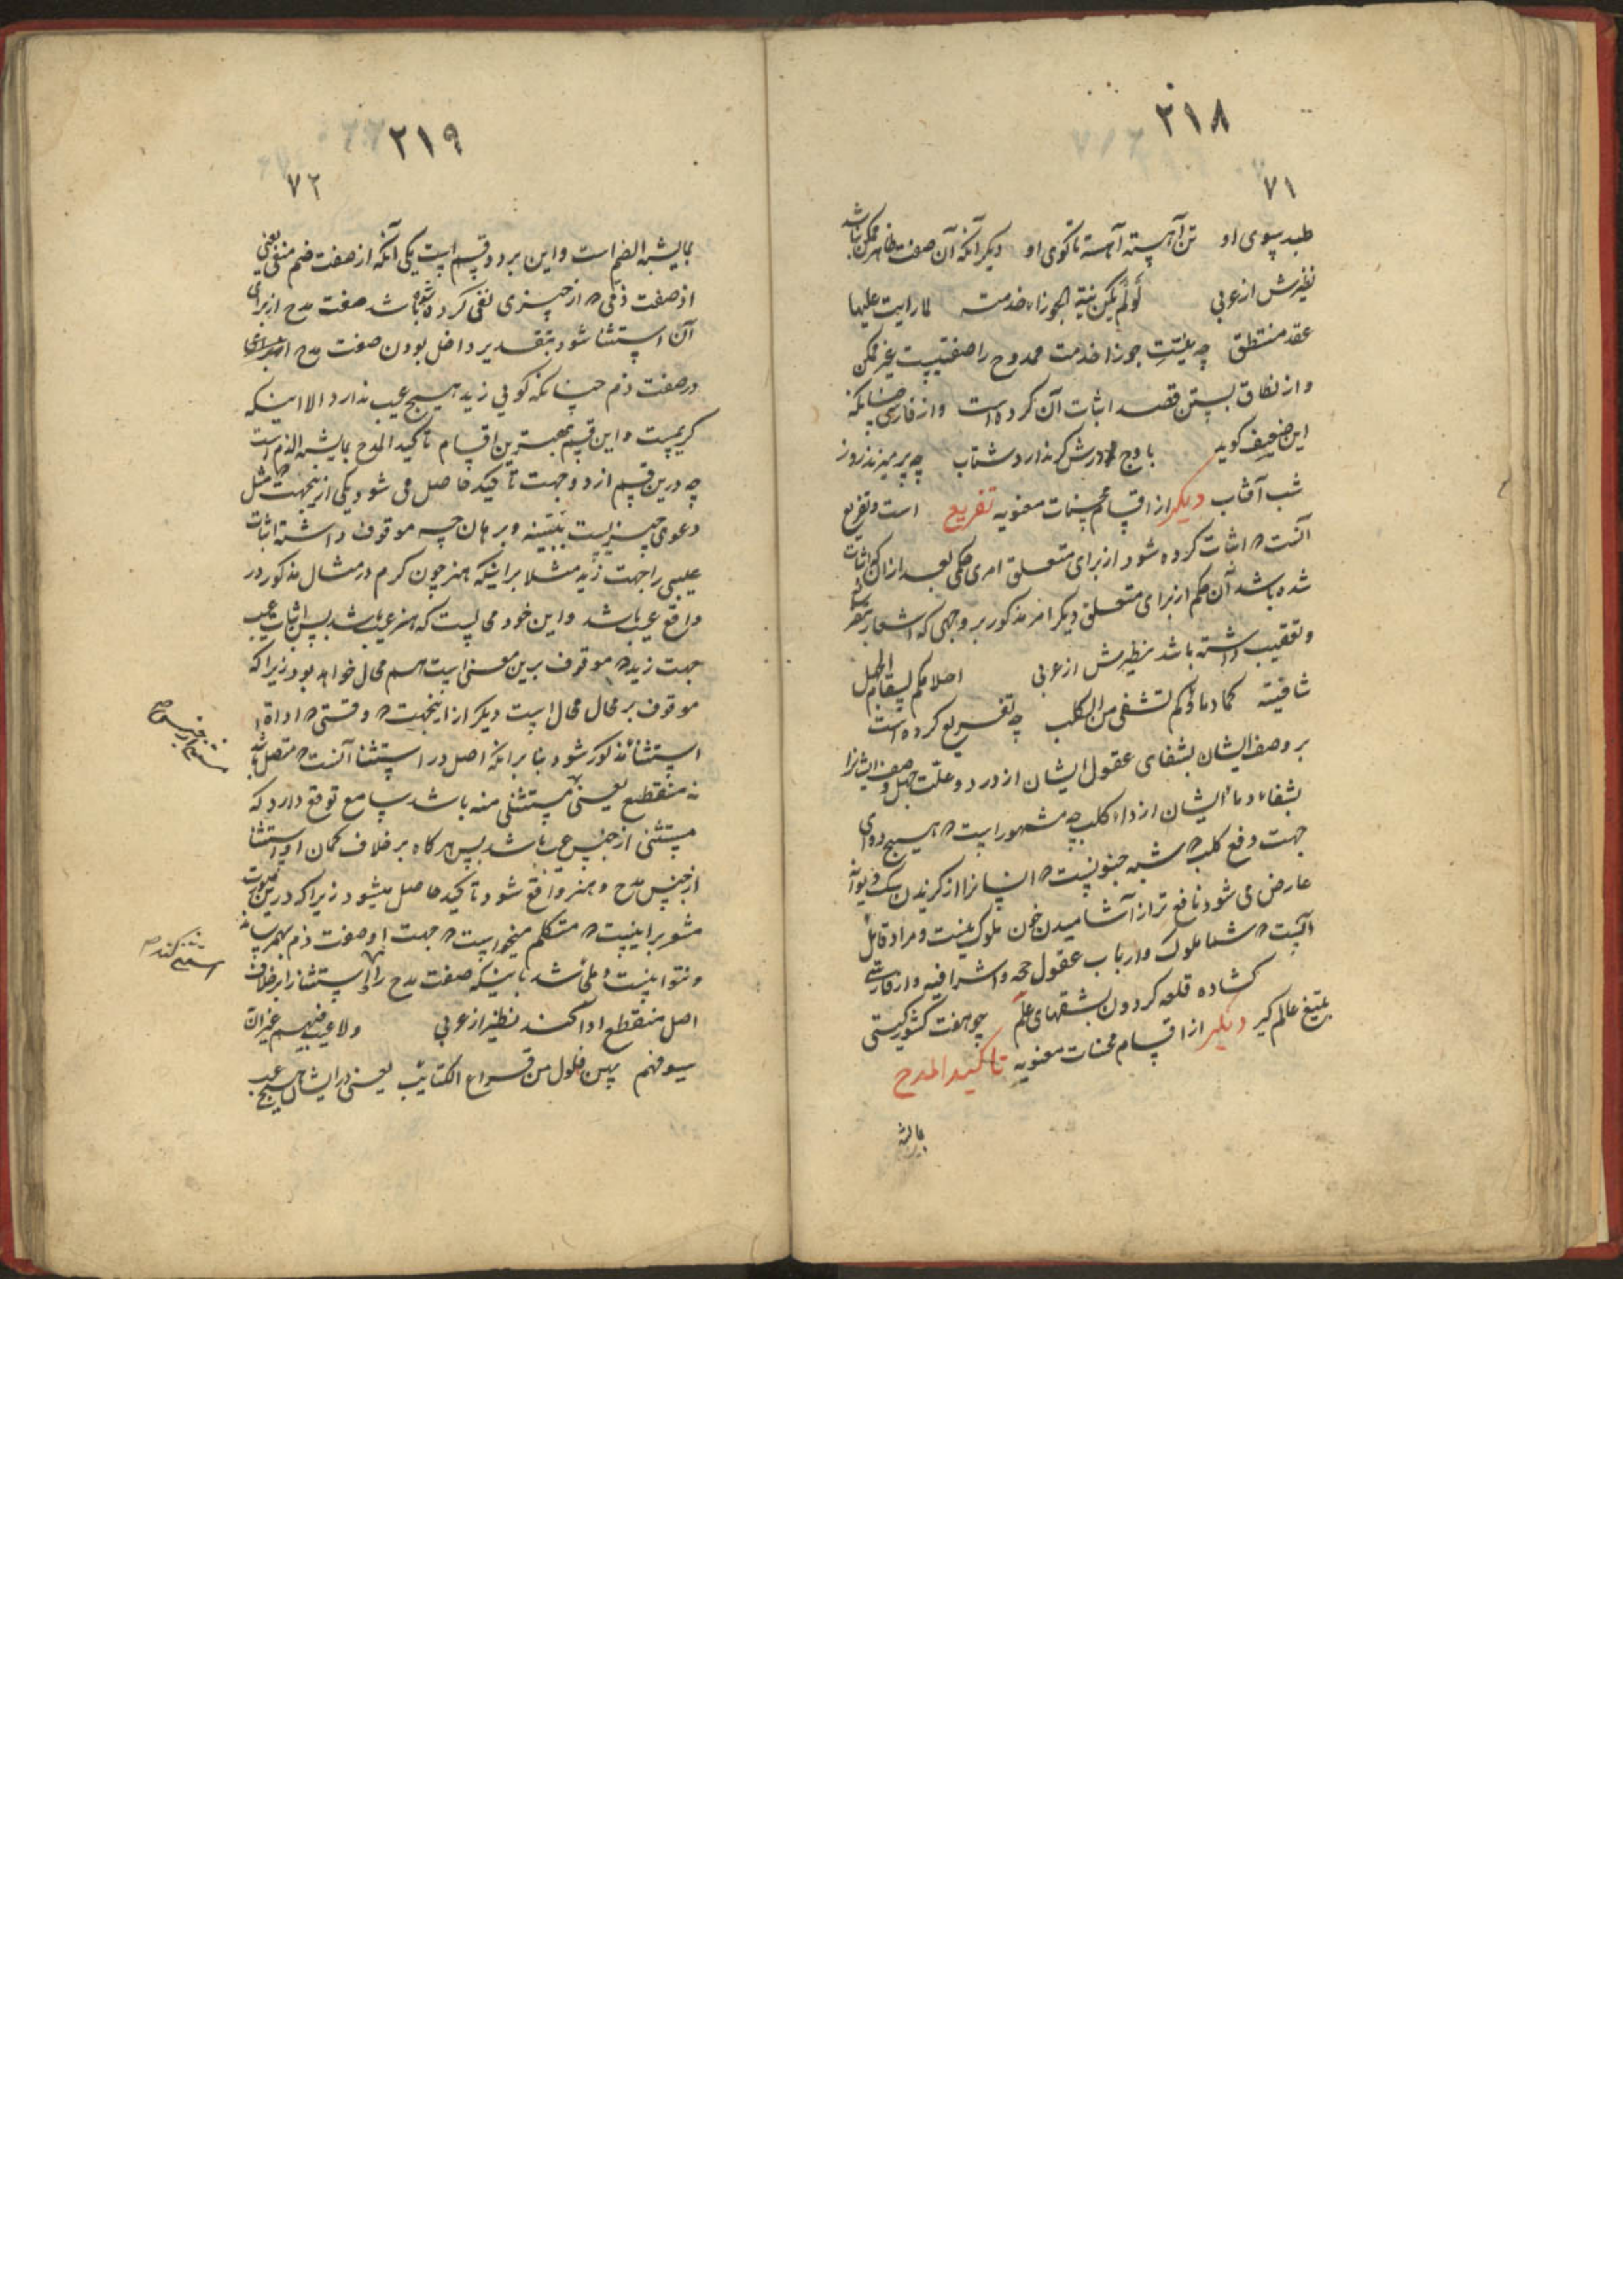 ۲۱۸
۷۱
طبد پسوی او تن آهسته آهسته تا کوی او دیکر آنکه آن صفت ظاهر ممکن نباشد
نظیرش از عربی لو لم یکن نیة الجوزاء خدمته لما رایت علیها
عقد منتطق چه نیّت جوزا خدمت ممدوح را صفتیست غیر ممکن
و از نطاق بستن قصد اثبات آن کرده است و از فارسی چنانکه
این ضعیف کوید باوج درش کر ندارد شتاب چه پر میزند روز
شب آفتاب دیکر از اقسام محسنات معنویه تفریع است و تفریع
آنست که اثبات کرده شود از برای متعلق امری حکمی بعد از آن که اثبات
شده باشد آن حکم از برای متعلق دیکر امر مذکور بر وجهی که اشعار بتفریع
و تعقیب داشته باشد نظیرش از عربی احلامکم لسقام الجهل
شافیة کما دماؤکم تشفی من الکلب چه تفریع کرده است
بر وصف ایشان بشفای عقول ایشان از درد و علّت جهل وصف ایشانرا
بشفاء دماء ایشان از داء کلب چه مشهور است که هیچ دوای
جهت دفع کلب که شبه جنونیست که انسانرا از کزیدن سک دیوانه
عارض می شود نافع تر از آشامیدن خون ملوک نیست و مراد قائل
آنست که شما ملوک و ارباب عقول حجه و اشرافید و از فارسی
کشاده قلعه کردون بشقهای علم چو هفت کشور کیتی
بتیغ عالم کیر دیکر از اقسام محسنات معنویه تاکید المدح
بمایشبه
۲۱۹
۷۲
بمایشبه الذم است و این بر دو قسم است یکی آنکه از صفت ذم منفی یعنی
از صفت ذمی که از چیزی نفی کرده شده باشد صفت مدح از برای
آن استثنا شود بتقدیر داخل بودن صفت مدح
در صفت ذم چنانکه کویی زید هیچ عیب ندارد الا اینکه
کریمست و این قسم بهترین اقسام تاکید المدح بمایشبه الذم است
چه درین قسم از دو جهت تاکید حاصل می شود یکی ازینجهت که مثل
دعوی چیزیست ببیّنه و برهان چه موقوف داشته اثبات
عیبی را جهت زید مثلا بر اینکه هنر چون کرم در مثال مذکور در
واقع عیب باشد و این خود محالیست که هنر عیب باشد پس اثبات عیب
جهت زید که موقوف برین معنی است هم محال خواهد بود زیرا که
موقوف بر محال محال است دیکر از اینجهت که وقتی که اداة
استثنا مذکور شود بنا بر آنکه اصل در استثنا آنست که متصل باشد
نه منقطع یعنی مستثنی منه باشد سامع توقع دارد که
مستثنی از جنس عیب باشد پس هرکاه بر خلاف کمان او استثنا
از جنس مدح و هنر واقع شود تاکید حاصل میشود زیرا که درین صورت
مشعر بر اینست که متکلم میخواست که جهت او صفت ذم بهم رساند
و نتوانست و ملجأ شد باینکه صفت مدح را استثنا برخلاف
اصل منقطع ادا کند نظیر از عربی ولا عیب فیهم غیر ان
سیوفهم بهن فلول من قراع الکتائب یعنی در ایشان هیچ عیب
مستثنی از جنس
استثنی کند